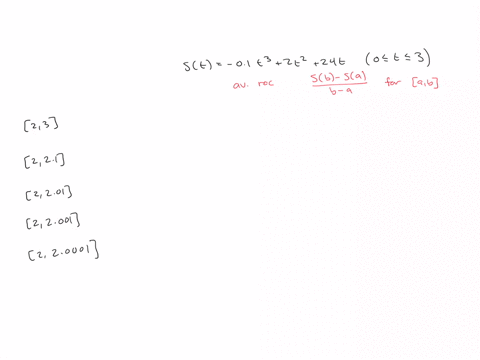 S(t) = -0.1 t³ + 2t² + 24t (0 ≤ t ≤ 3)
av. roc S(b) - S(a) / b - a for [a,b]
[2, 3]
[2, 2.1]
[2, 2.01]
[2, 2.001]
[2, 2.0001]